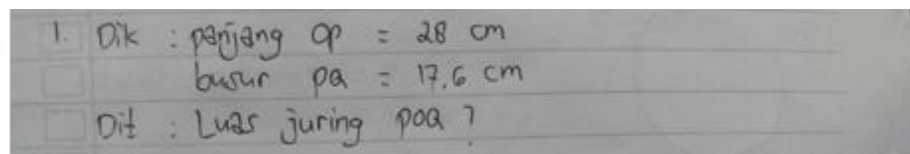 1. Dik : panjang OP = 28 cm
busur PQ = 17,6 cm
Dit : Luas juring POQ ?